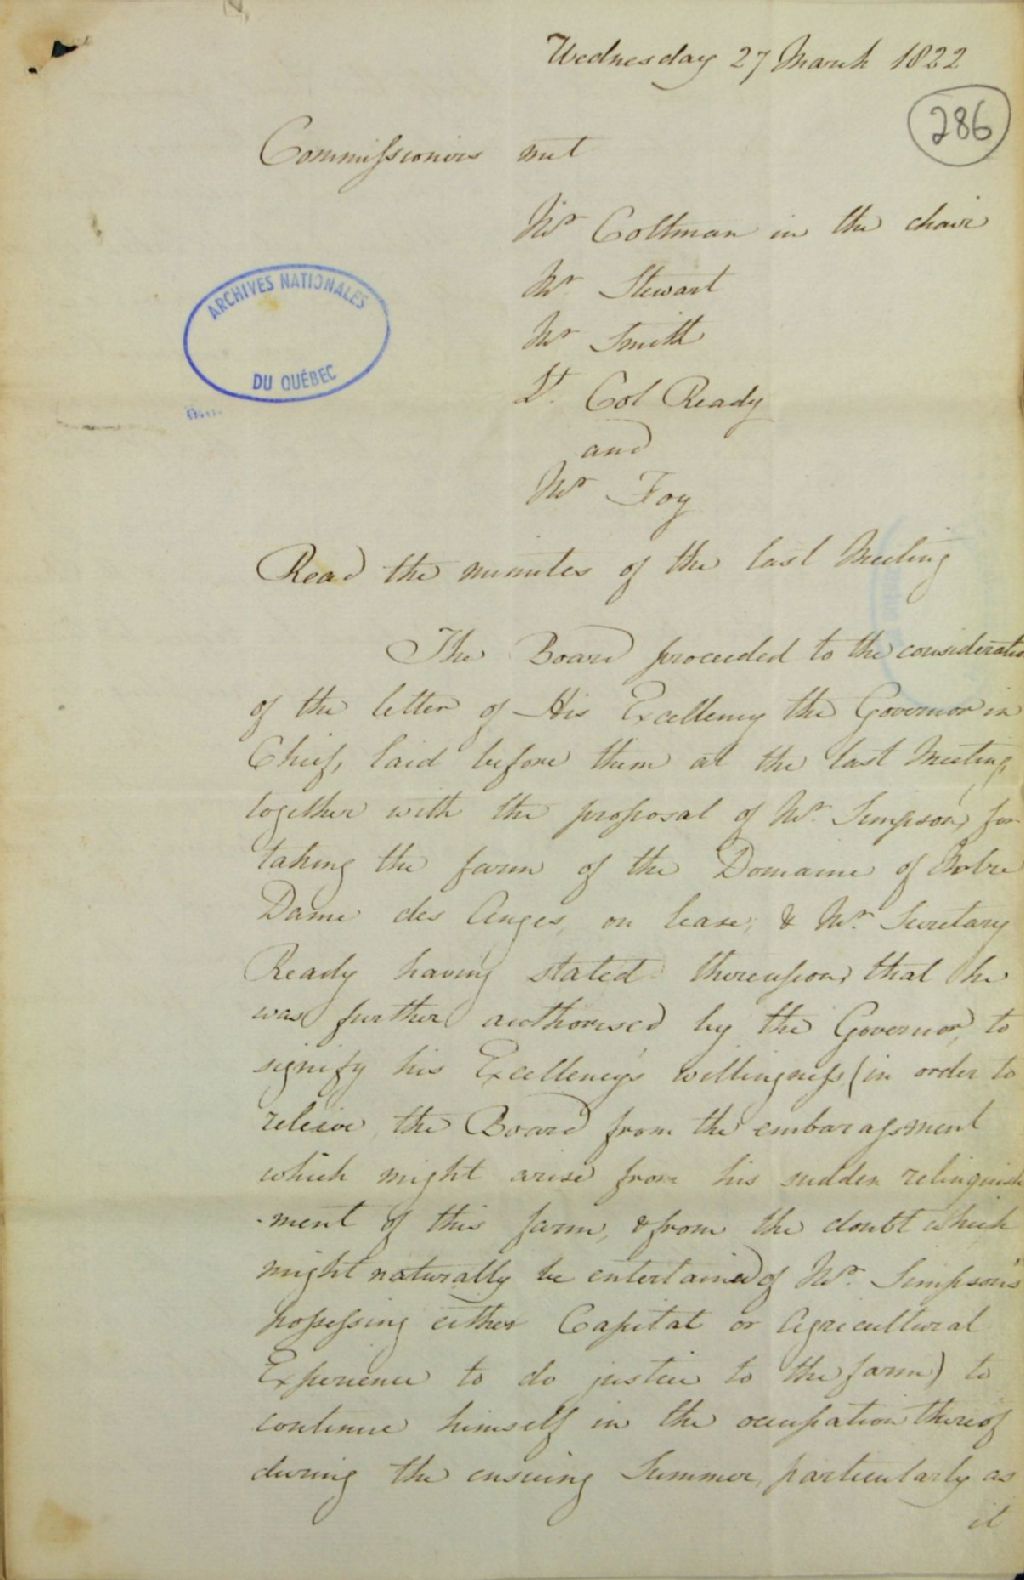 Wednesday 27 March 1822
286
Commissioners met
Mr Coltman in the chair
Mr. Stewart
Mr Smith
Lt. Col Ready
and
Mr Foy
ARCHIVES NATIONALES
DU QUÉBEC
Read the minutes of the last Meeting
The Board proceeded to the consideratio
of the letter of His Excellency the Governor in
Chief, laid before them at the last Meeting
together with the proposal of Mr. Simpson, for
taking the farm of the Domaine of Notre
Dame des Anges, on lease, & Mr. Secretary
Ready having stated thereupon, that he
was further authorised by the Governor, to
signify his Excellency's willingness (in order to
releive the Board from the embarassment
which might arise from his sudden relinquish
-ment of this farm, & from the doubt which
might naturally be entertained of Mr. Simpson's
possessing either Capital or Agricultural
Experience to do justice to the farm) to
continue himself in the occupation thereof
during the ensuing Summer, particularly as
it